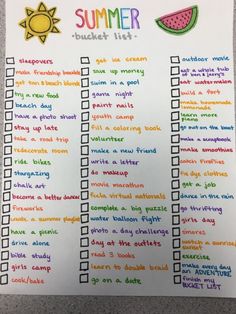 SUMMER
•bucket list•
sleepovers
make friendship bracelets
get tan & bleach blonde
try a new food
beach day
have a photo shoot
stay up late
take a road trip
redecorate room
ride bikes
stargazing
chalk art
become a better dancer
fireworks
create a summer playlist
have a picnic
drive alone
bible study
girls camp
cook/bake
get ice cream
save up money
swim in a pool
game night
paint nails
youth camp
fill a coloring book
volunteer
make a new friend
write a letter
do makeup
movie marathon
fiesta video nationals
complete a big puzzle
water balloon fight
photo a day challenge
day at the outlets
read 3 books
learn to double braid
go on a date
outdoor movie
eat a whole tub of ben & jerry's
eat watermelon
build a fort
make homemade lemonade
learn more piano
go out on the boat
make a scrapbook
make smoothies
catch fireflies
tie dye clothes
get a job
dance in the rain
go thrifting
girls day
s'mores
watch a sunrise/sunset
exercise
make every day an ADVENTURE
finish my BUCKET LIST